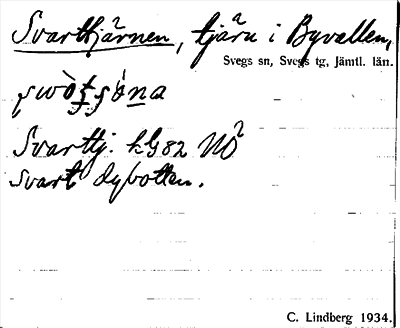 Svarttjärnen, tjärn i Byvallen,
Svegs sn, Svegs tg, Jämtl. län.
Svarttj. hG82 NO²
svart dybotten.
C. Lindberg 1934.